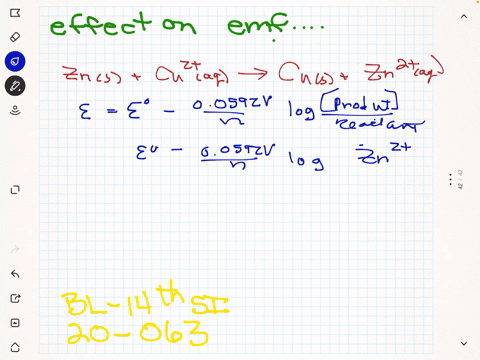 effect on emf....
Zn(s) + Cu²⁺(aq) → Cu(s) + Zn²⁺(aq)
ε = ε° - 0.0592V/n log [Product]/reactant
ε° - 0.0592V/n log Zn²⁺
BL-14th SI
20-063